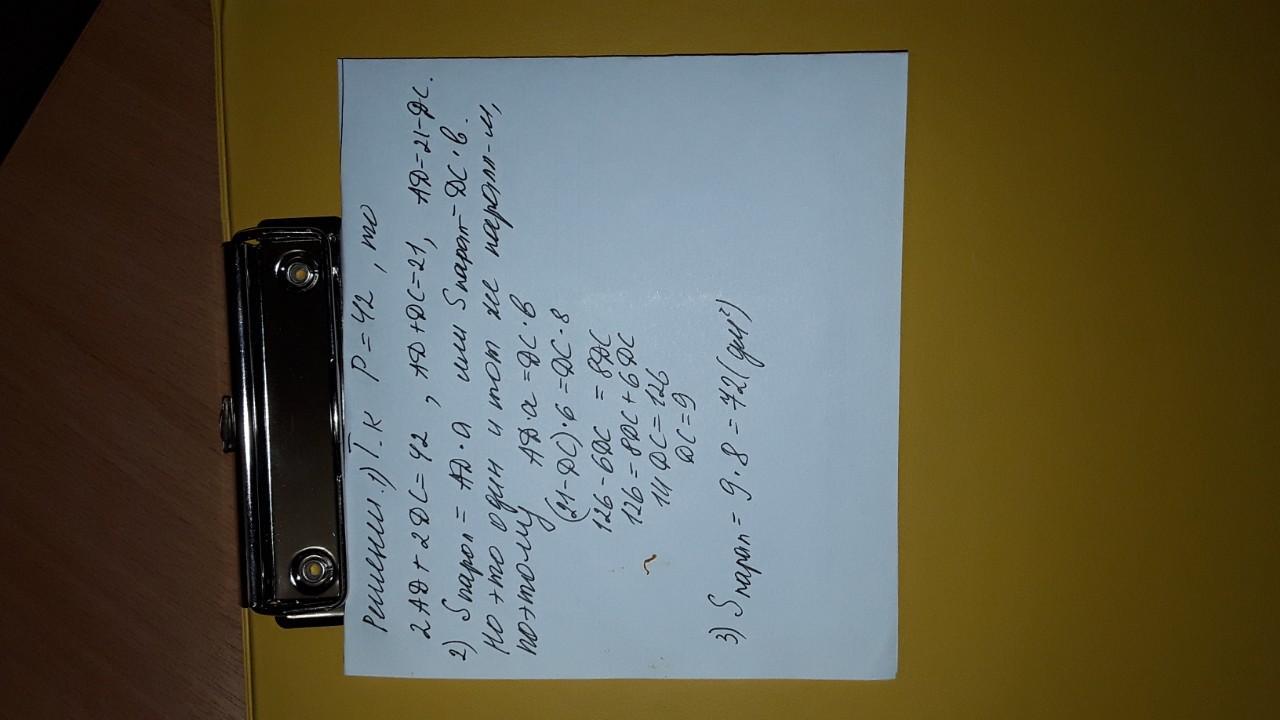 Решении. 1) Т.к P = 42, то
2AD + 2DC = 42, AD + DC = 21, AD = 21 - DC.
2) Sпарал = AD · a или Sпарал = DC · в.
Но это один и тот же паралл-м,
поэтому AD · a = DC · в
(21 - DC) · 6 = DC · 8
126 - 6DC = 8DC
126 = 8DC + 6DC
14 DC = 126
DC = 9
3) Sпарал = 9 · 8 = 72 (дм²)